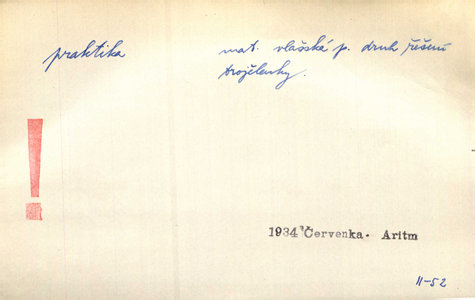 praktika
mat. vlašská p. druh řešení
trojčlenky.
!
1934 Červenka. Aritm
II-52